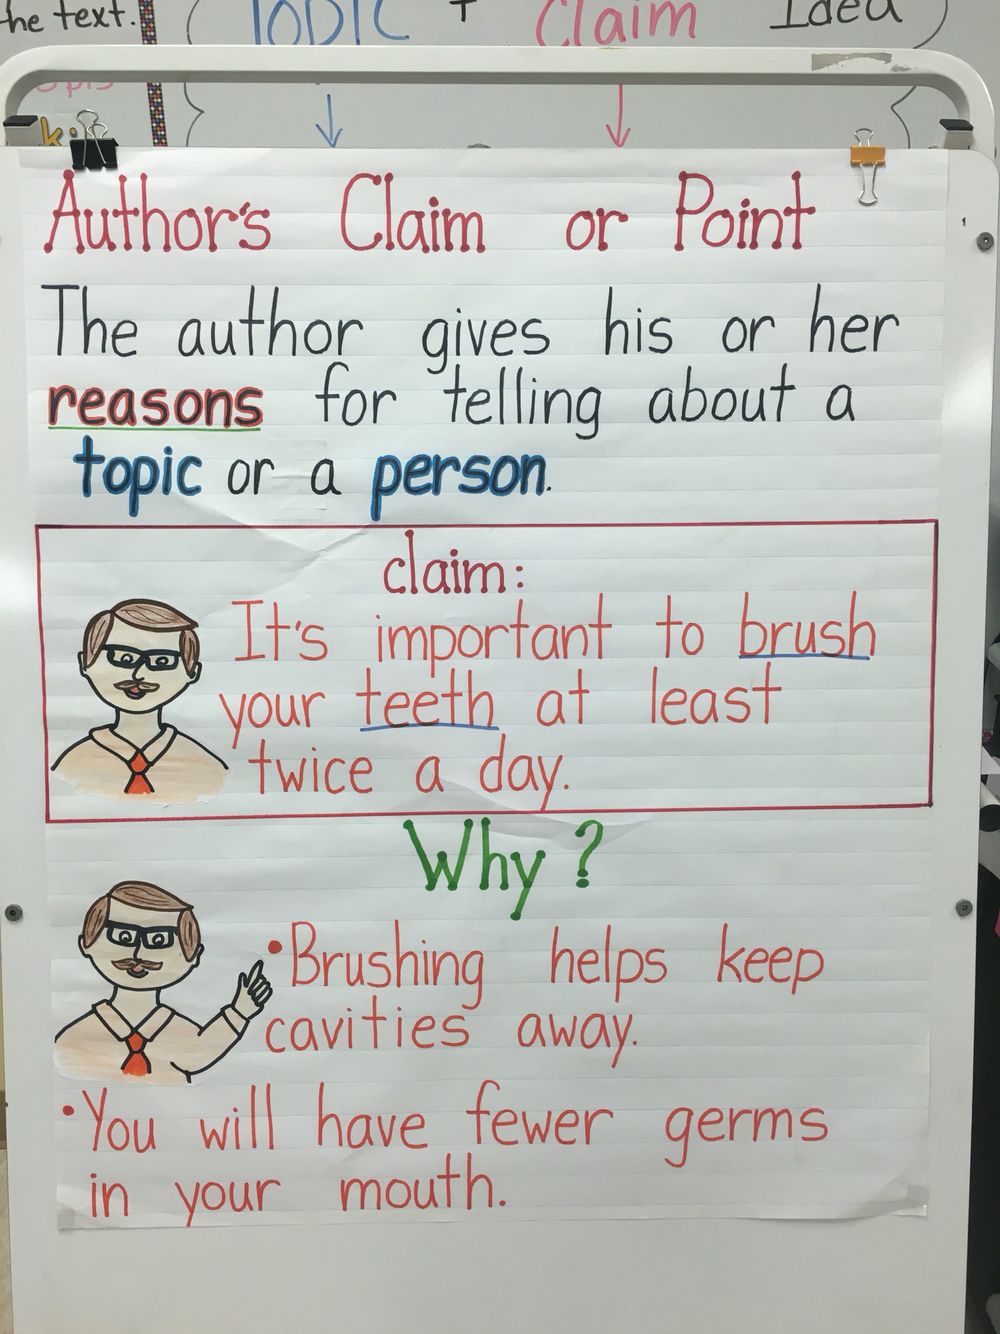 the text.
TOPIC + Claim Idea
Author's Claim or Point
The author gives his or her
reasons for telling about a
topic or a person.
claim:
It's important to brush
your teeth at least
twice a day.
Why?
•Brushing helps keep
cavities away.
•You will have fewer germs
in your mouth.